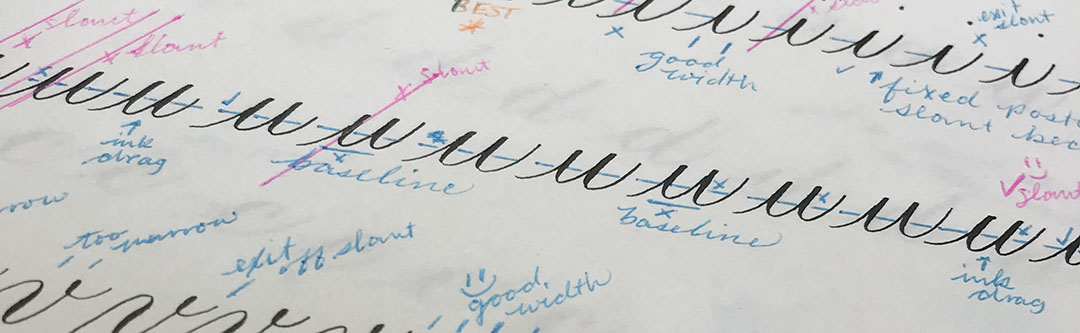 slant
slant
BEST
slant
exit
slant
good
width
fixed
slant
i i i i i
u u u u u u u u u
ink
drag
baseline
baseline
slant
ink
drag
too narrow
exit off slant
good
width
v v v